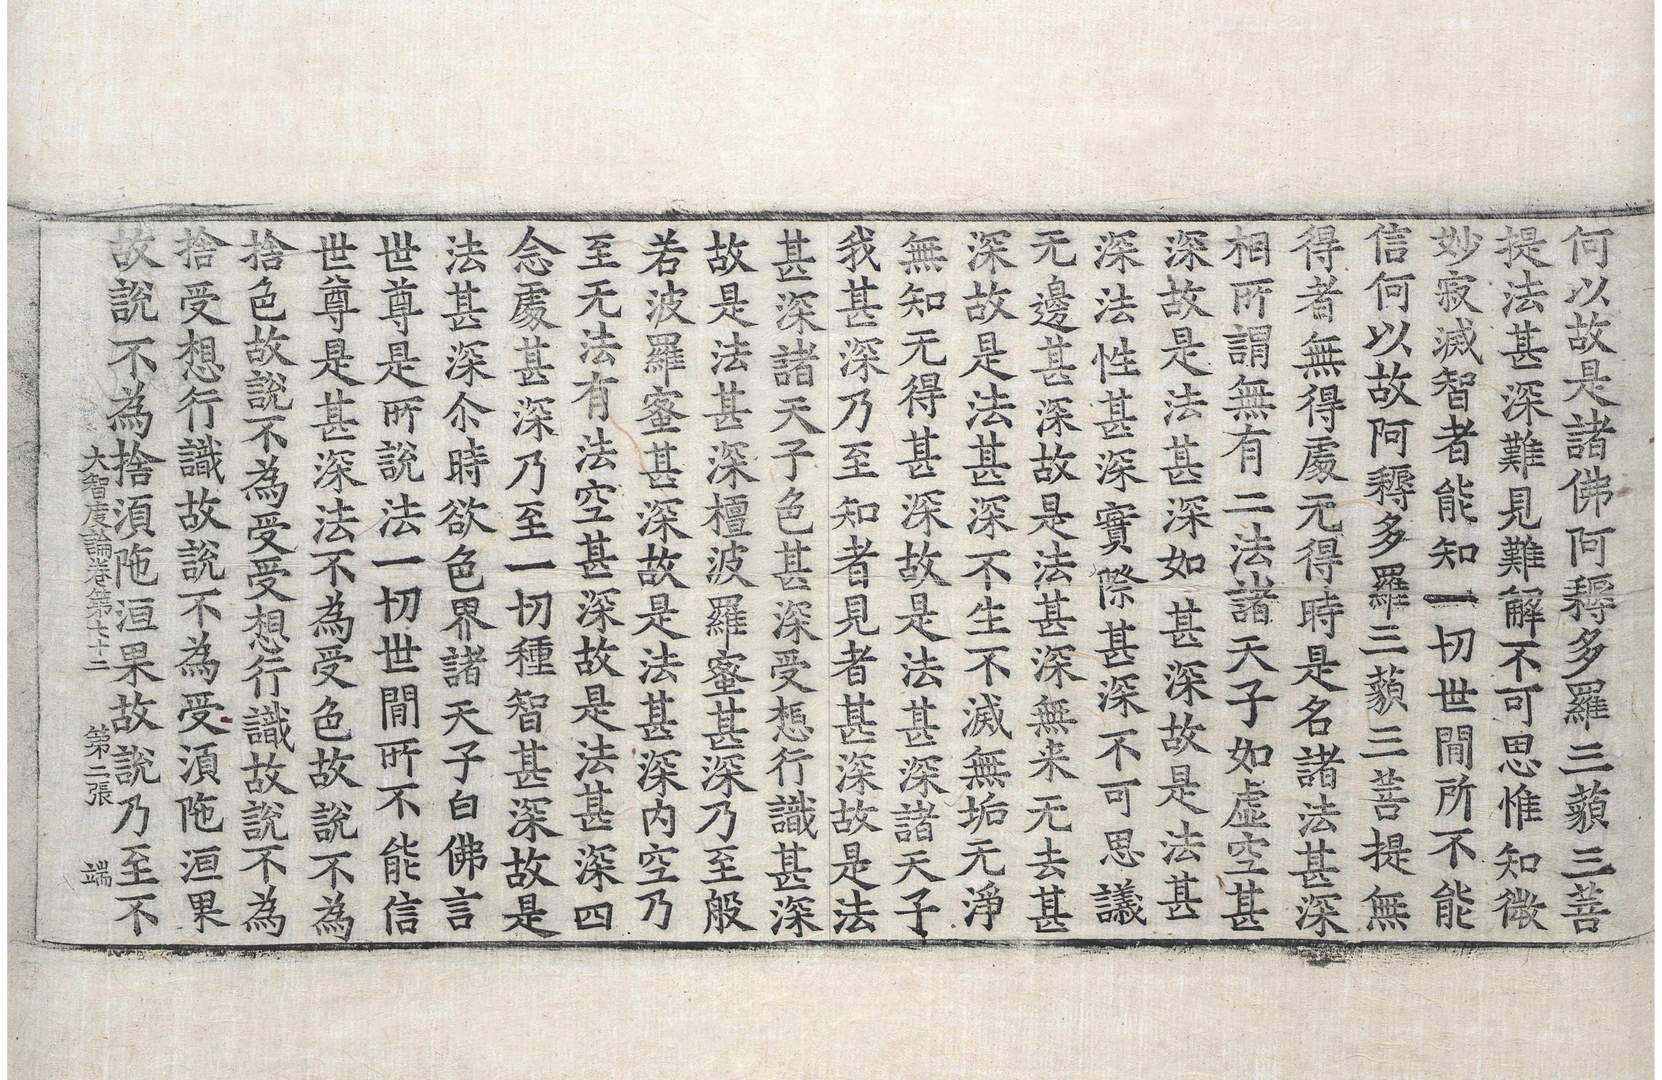 何以故是諸佛阿耨多羅三藐三菩
提法甚深難見難解不可思惟知微
妙寂滅智者能知一切世間所不能
信何以故阿耨多羅三藐三菩提無
得者無得處无得時是名諸法甚深
相所謂無有二法諸天子如虛空甚
深故是法甚深如甚深故是法甚
深法性甚深實際甚深不可思議
无邊甚深故是法甚深無来无去甚
深故是法甚深不生不滅無垢无淨
無知无得甚深故是法甚深諸天子
我甚深乃至知者見者甚深故是法
甚深諸天子色甚深受想行識甚深
故是法甚深檀波羅蜜甚深乃至般
若波羅蜜甚深故是法甚深内空乃
至无法有法空甚深故是法甚深四
念處甚深乃至一切種智甚深故是
法甚深尒時欲色界諸天子白佛言
世尊是所說法一切世間所不能信
世尊是甚深法不為受色故說不為
捨色故說不為受受想行識故說不為
捨受想行識故說不為受湏陁洹果
故說不為捨湏陁洹果故說乃至不
大智度論卷第七十二 第二張 端